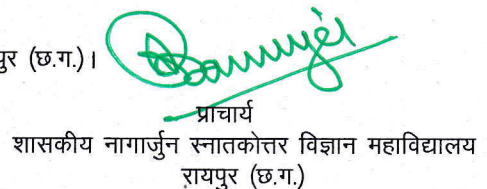 पुर (छ.ग.)।
प्राचार्य
शासकीय नागार्जुन स्नातकोत्तर विज्ञान महाविद्यालय
रायपुर (छ.ग.)